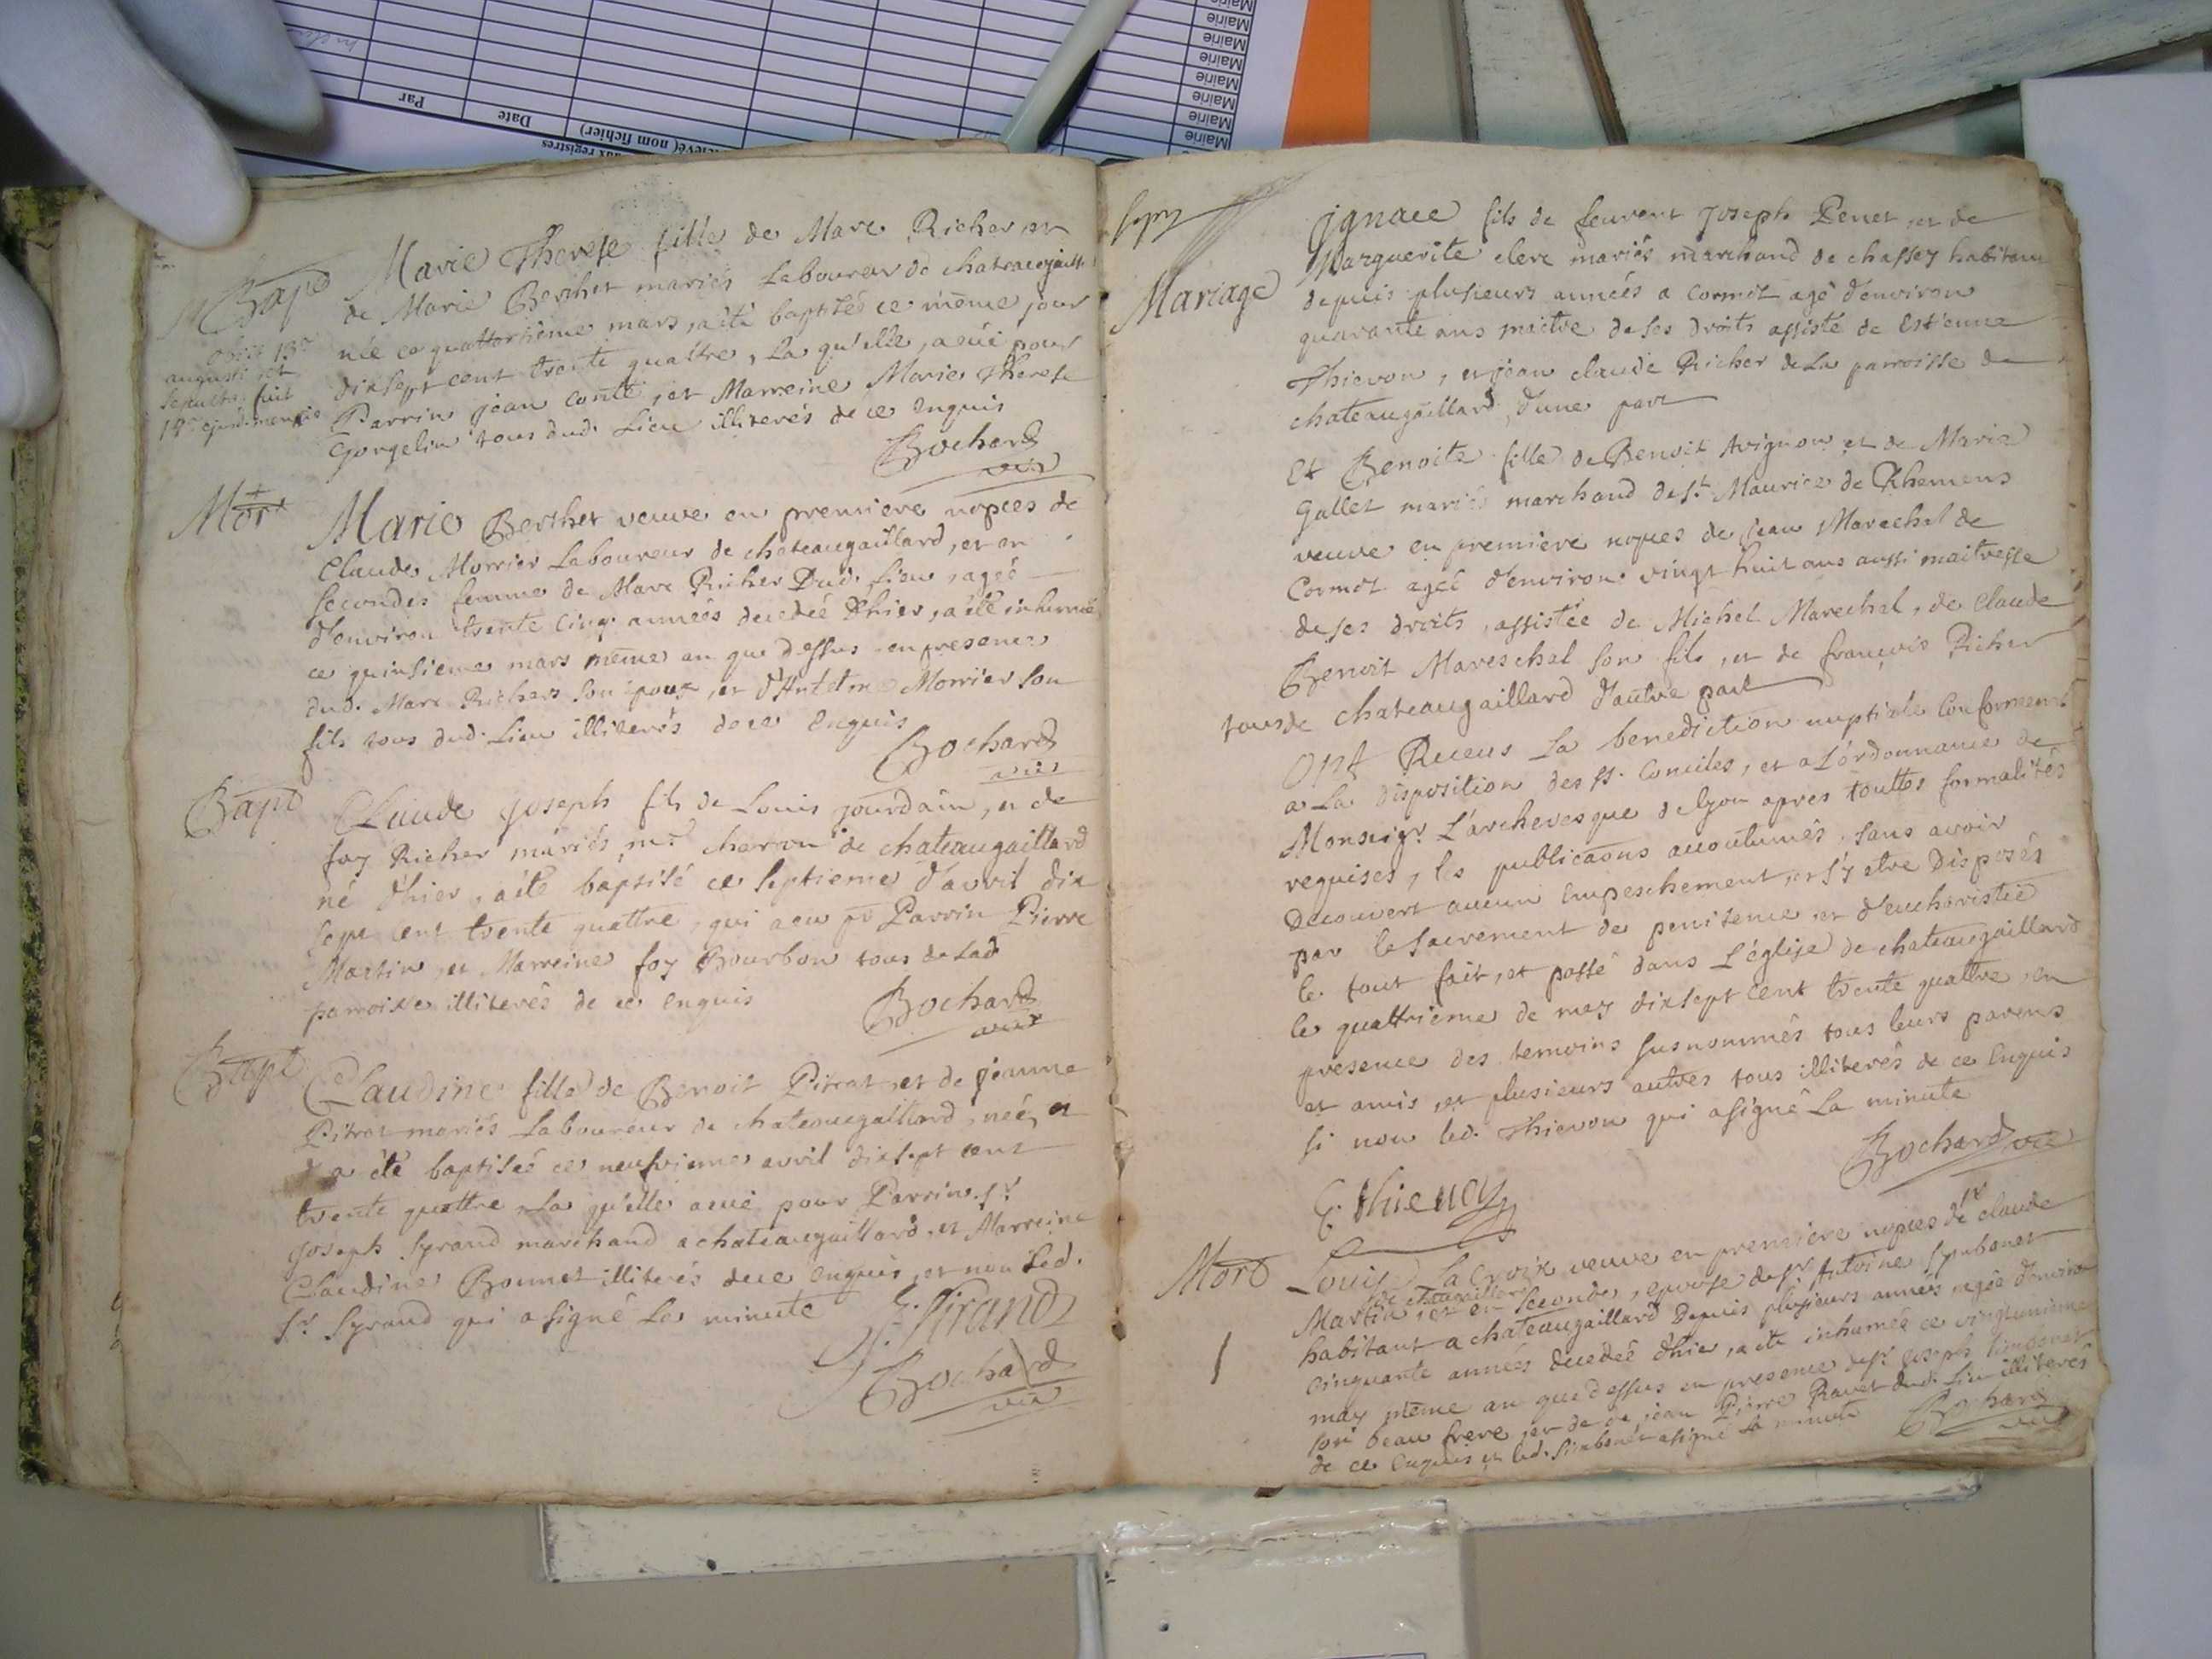 Mairie
Mairie
Mairie
Mairie
Mairie
Mairie
Mairie
Par
Date
(nom fichier)
registres
Bapt
obiit 13a
augusti et
sepulta fuit
Marie Therese fille de Marc Richer et
de Marie Berthet mariés Laboureur de chateaugaill
née ce quattorsième mars, a été baptisée ce même jour
dixsept cent trente quattre, La qu'elle, a eüe pour
Parrin jean conte, et Marreine Marie Therese
Gorgelin tous dud. Lieu illiterés de ce Enquis
Bochard
vic
Mort
Marie Berthet veuve en premiere nopces de
Claude Morrier Laboureur de chateaugaillard, et en
secondes femme de Marc Richer Dud. Lieu, agée
d'environ trente Cinq années decedée d'hier, a été inhumée
ce quinsieme mars même an que dessus en presence
dud. Marc Richer son epoux, et d'Antelme Morrier son
fils tous dud. Lieu illiterés de ce Enquis
Bochard
vic
Bapt
Claude Joseph fils de Louis jourdain, et de
foy Richer mariés, mr charron de chateaugaillard
né d'hier, a été baptisé ce septieme d'avril dix
sept cent trente quattre, qui a eu pr Parrin Pierre
Martin, et Marreine foy Bourbon tous de Lad
parroisse illiterés de ce enquis
Bochard
vic
Bapt
Claudine fille de Benoit Pitrat, et de jeanne
Pitrat mariés Laboureur de chateaugaillard, née, et
a été baptisée ce neufvieme avril dixsept cent
trente quattre, La qu'elle a eüe pour Parrin sr
Joseph Syrand marchand a chateaugaillard, et Marreine
Claudine Bonnet illiterés de ce enquis, et non Led.
sr Syrand qui a signé La minute
J. Sirand
Bochard
vic
Mariage
ignace fils de feuvent Joseph Penet, et de
Marguerite clerc mariés marchand de chassey habitant
depuis plusieurs années a Cormoz agé d'environ
quarante ans maitre de ses droits assisté de Estienne
Thievon, et jean claude Richer de La parroisse de
chateaugaillard, d'une part
Et Benoite fille de Benoit Avignon et de Marie
Gallet mariés marchand de st Maurice de Rhemens
veuve en premiere nopces de jean Marechal de
Cormoz agée d'environ vingt huit ans aussi maitresse
de ses droits, assistée de Michel Marechal, de Claude
Benoit Mareschal son fils, et de françois Richer
tous de chateaugaillard d'autre part
Ont Receus La benediction nuptiale Conformement
a La disposition des ss. Conciles, et a L'ordonnance de
Monseigr L'archevesque de lyon apres touttes formalités
requises, les publicaons accoutumés, sans avoir
Decouvert aucun Empeschement, et s'y etre Disposés
par le sacrement de penitence et d'eucharistie
le tout fait, et passé dans L'église de chateaugaillard
le quattrieme de may dixsept cent trente quattre, en
presence des temoins susnommés tous leurs parens
et amis, et plusieurs autres tous illiterés de ce Enquis
si non led. Thievon qui a signé La minute
Bochard vic
Mort
Louise La Croix veuve en premiere nopces de sr claude
Martin, et en secondes, epouse de sr Antoine Symbonet
habitant a chateaugaillard Depuis plusieurs années agée d'environ
cinquante années decedée d'hier, a été inhumée ce vingtunieme
may même an que dessus en presence de sr joseph simbonet
son beau frere, et de jean Pierre Ravet dud. Lieu illiterés
de ce Enquis et led. Simbonet a signé La minute
Bochard
vic